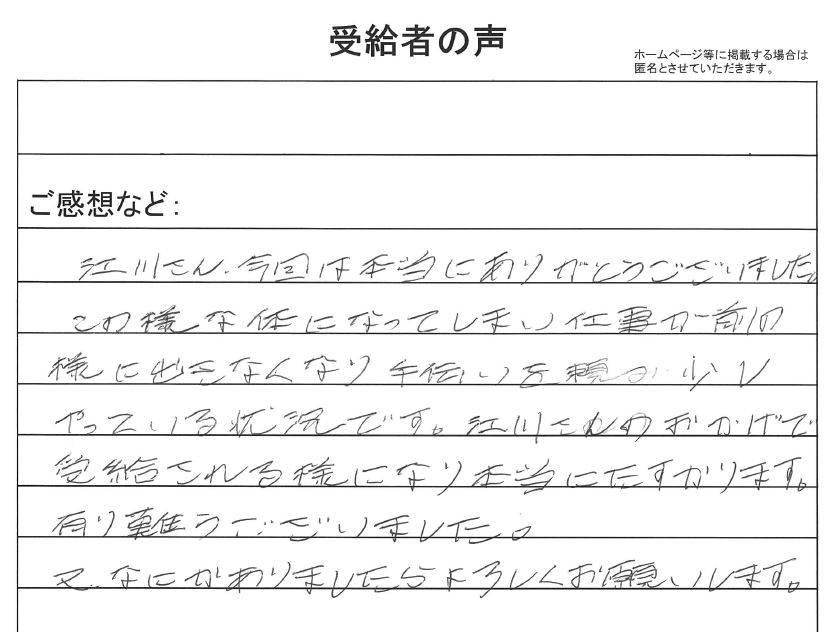 受給者の声
ホームページ等に掲載する場合は
匿名とさせていただきます。
ご感想など：
江川さん、今回は本当にありがとうございました。
この様な体になってしまい仕事が前の
様に出きなくなり手伝いを 少し
やっている状況です。江川さんのおかげで
受給される様になり本当にたすかります。
有り難うございました。
又、なにかありましたらよろしくお願いします。